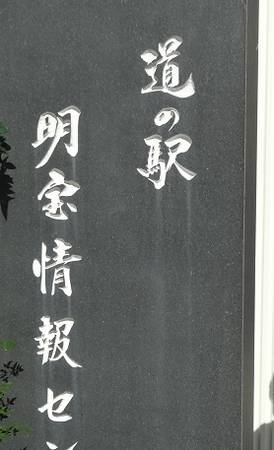 道の駅
明宝情報セン